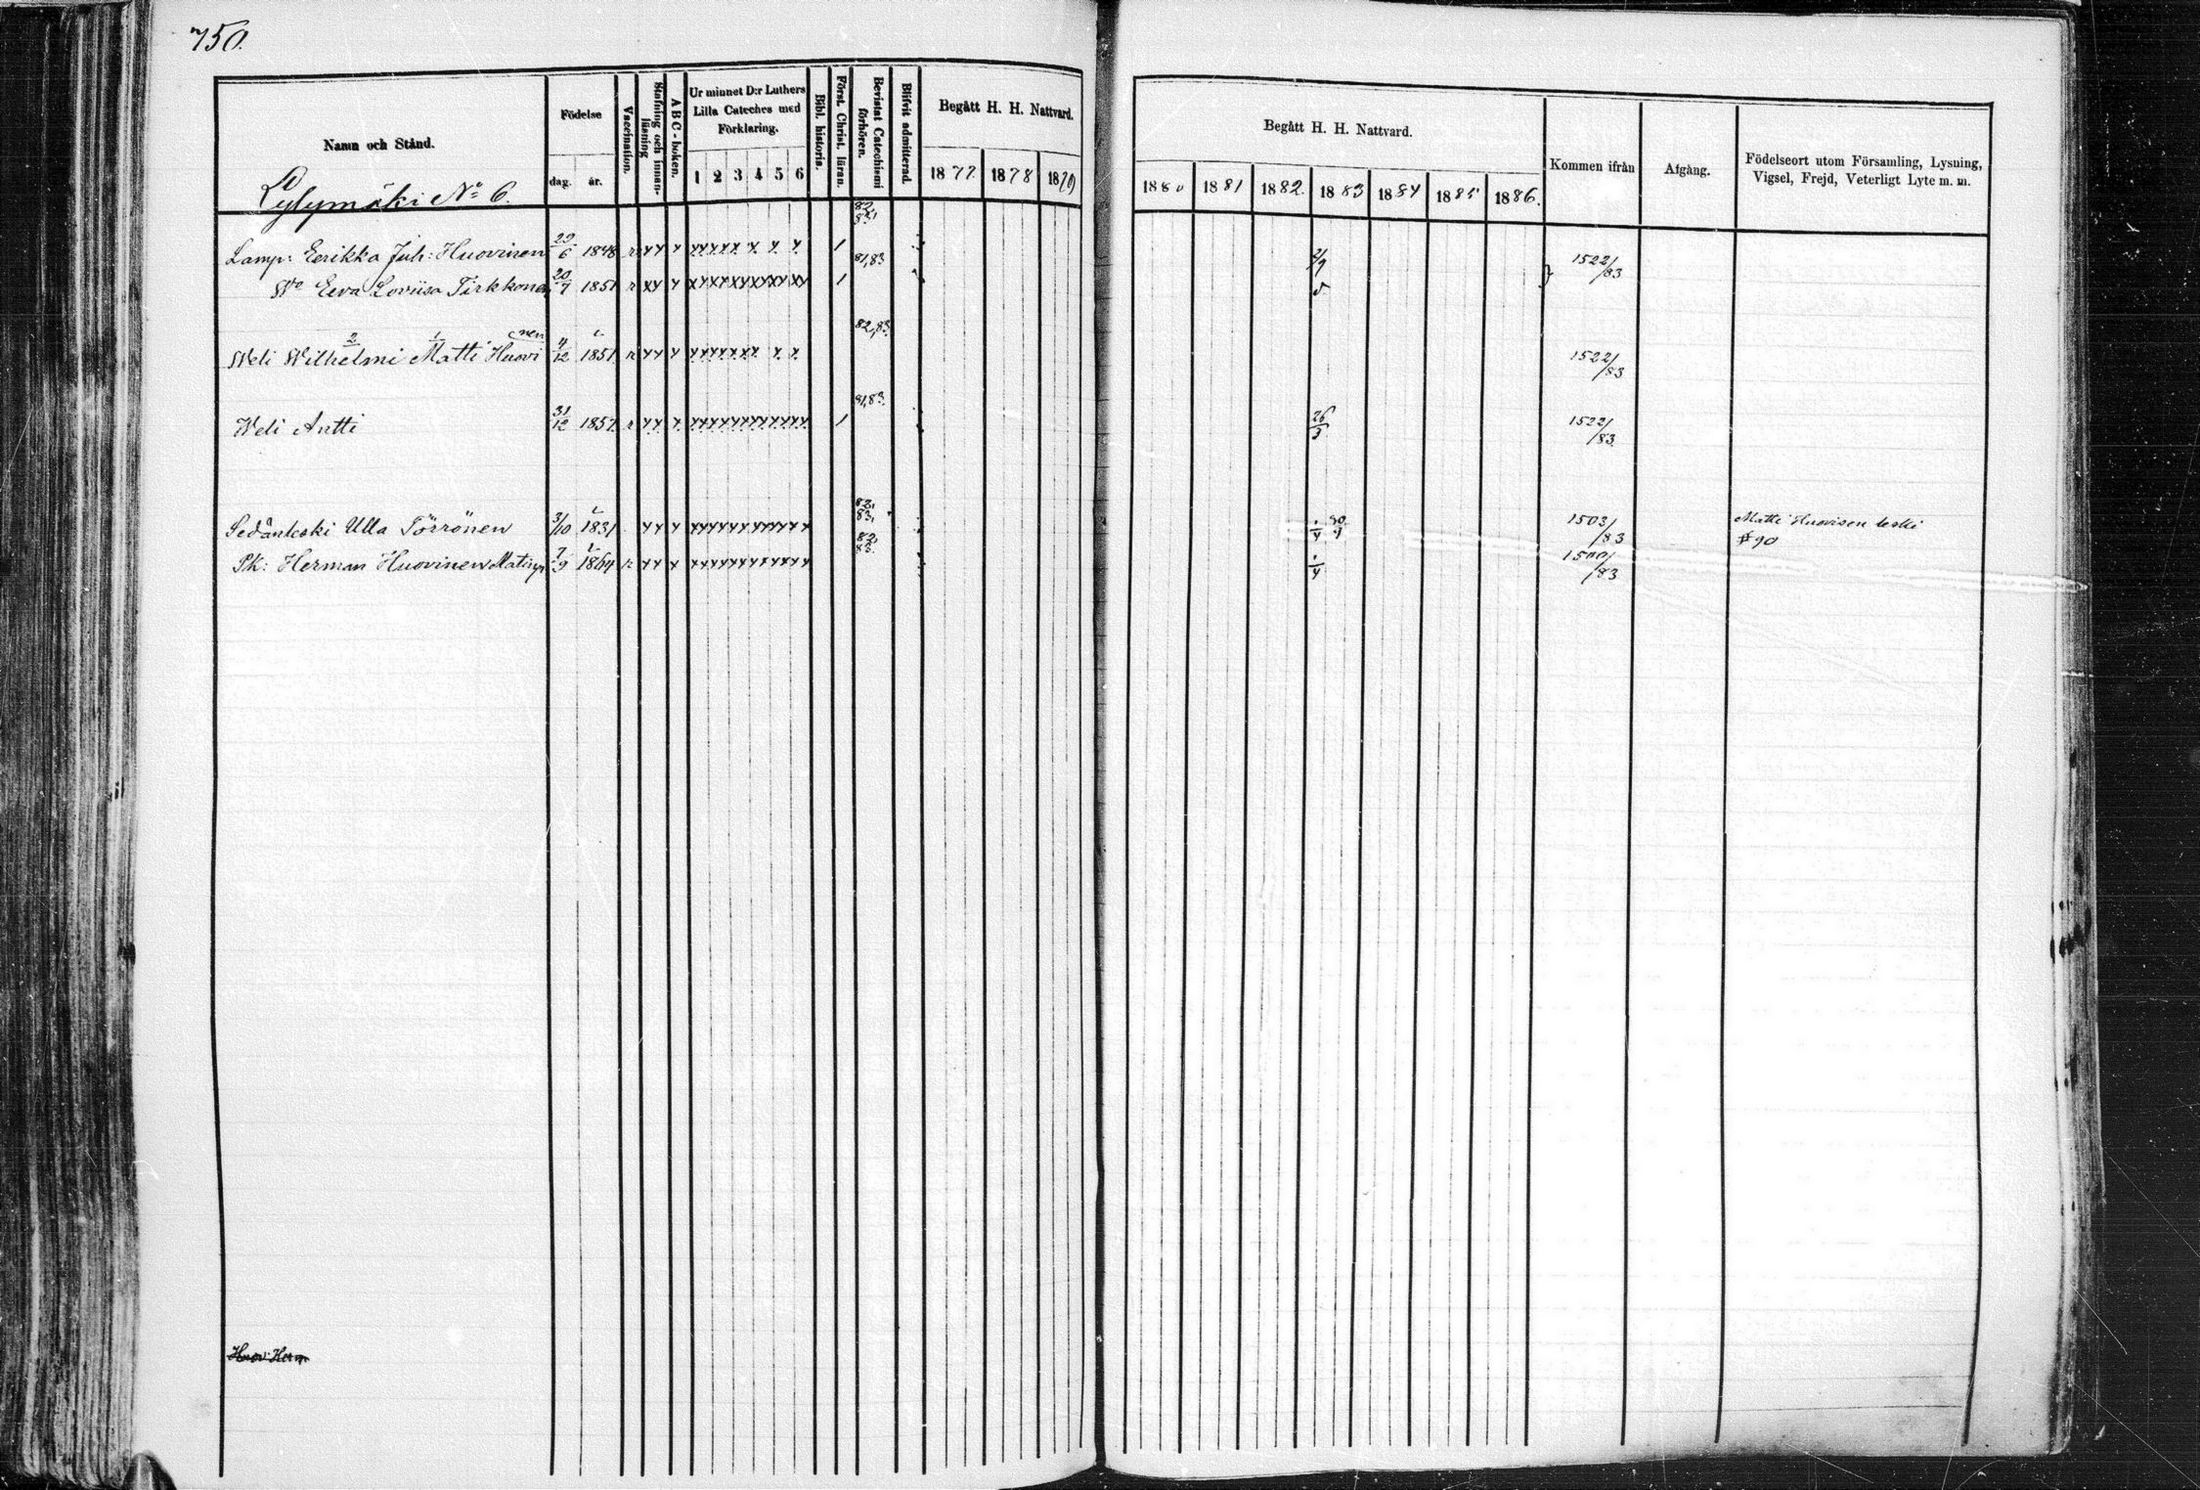 750.
Namn och Stånd.
Lylymäki No 6.
Födelse
dag. år.
Vaccination.
Stafning och innan-läsning
A B C-boken.
Ur minnet D:r Luthers
Lilla Cateches med
Förklaring.
1 2 3 4 5 6
Bibl. historia.
Först. Christ. läran.
Bevistat Catechismi förhören.
Blifvit admitterad.
Begått H. H. Nattvard.
1877 1878 1879
Begått H. H. Nattvard.
1880 1881 1882 1883 1884 1885 1886.
Kommen ifrån
Afgång.
Födelseort utom Församling, Lysning,
Vigsel, Frejd, Veterligt Lyte m. m.
82,
83,
Lamp: Eerikka Juh: Huovinen 29/6 1848 1522/83
81,83
Wo Eeva Loviisa Tirkkonen 20/7 1851 1
82,83
2 1 nen
Weli Wilhelmi Matti Huovi 4/12 1851 1522/83
81,83
Weli Antti 31/12 1857 1 26/3 1522/83
82,
83,
Sedänleski Ulla Törrönen 3/10 1831 1/4 30/9 1503/83 Matti Huovisen leski
#90
82,
Pk: Herman Huovinen Matinp. 7/9 1864 1/4 1500/83
Huov: Herm